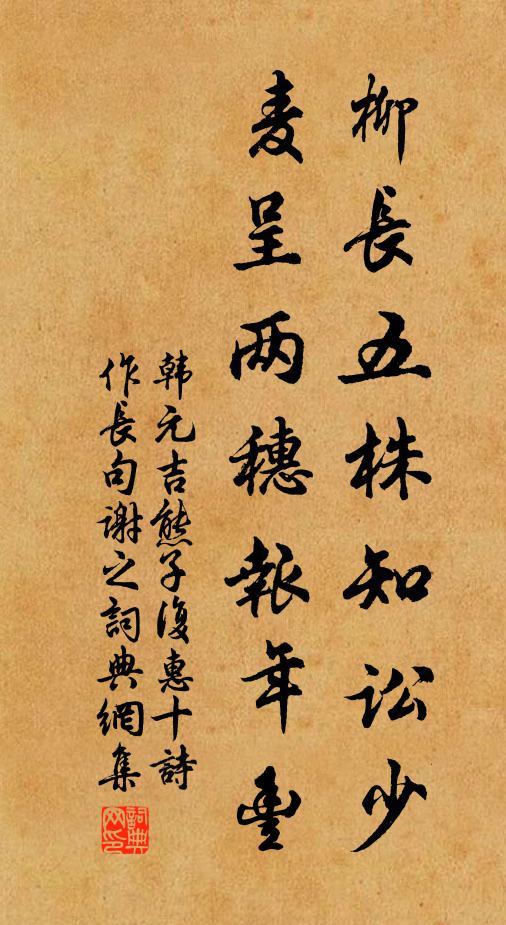 柳長五株知訟少
麦呈两穗報年豊
韩元吉熊子復惠十詩
作長句謝之詞典網集
詞典网印